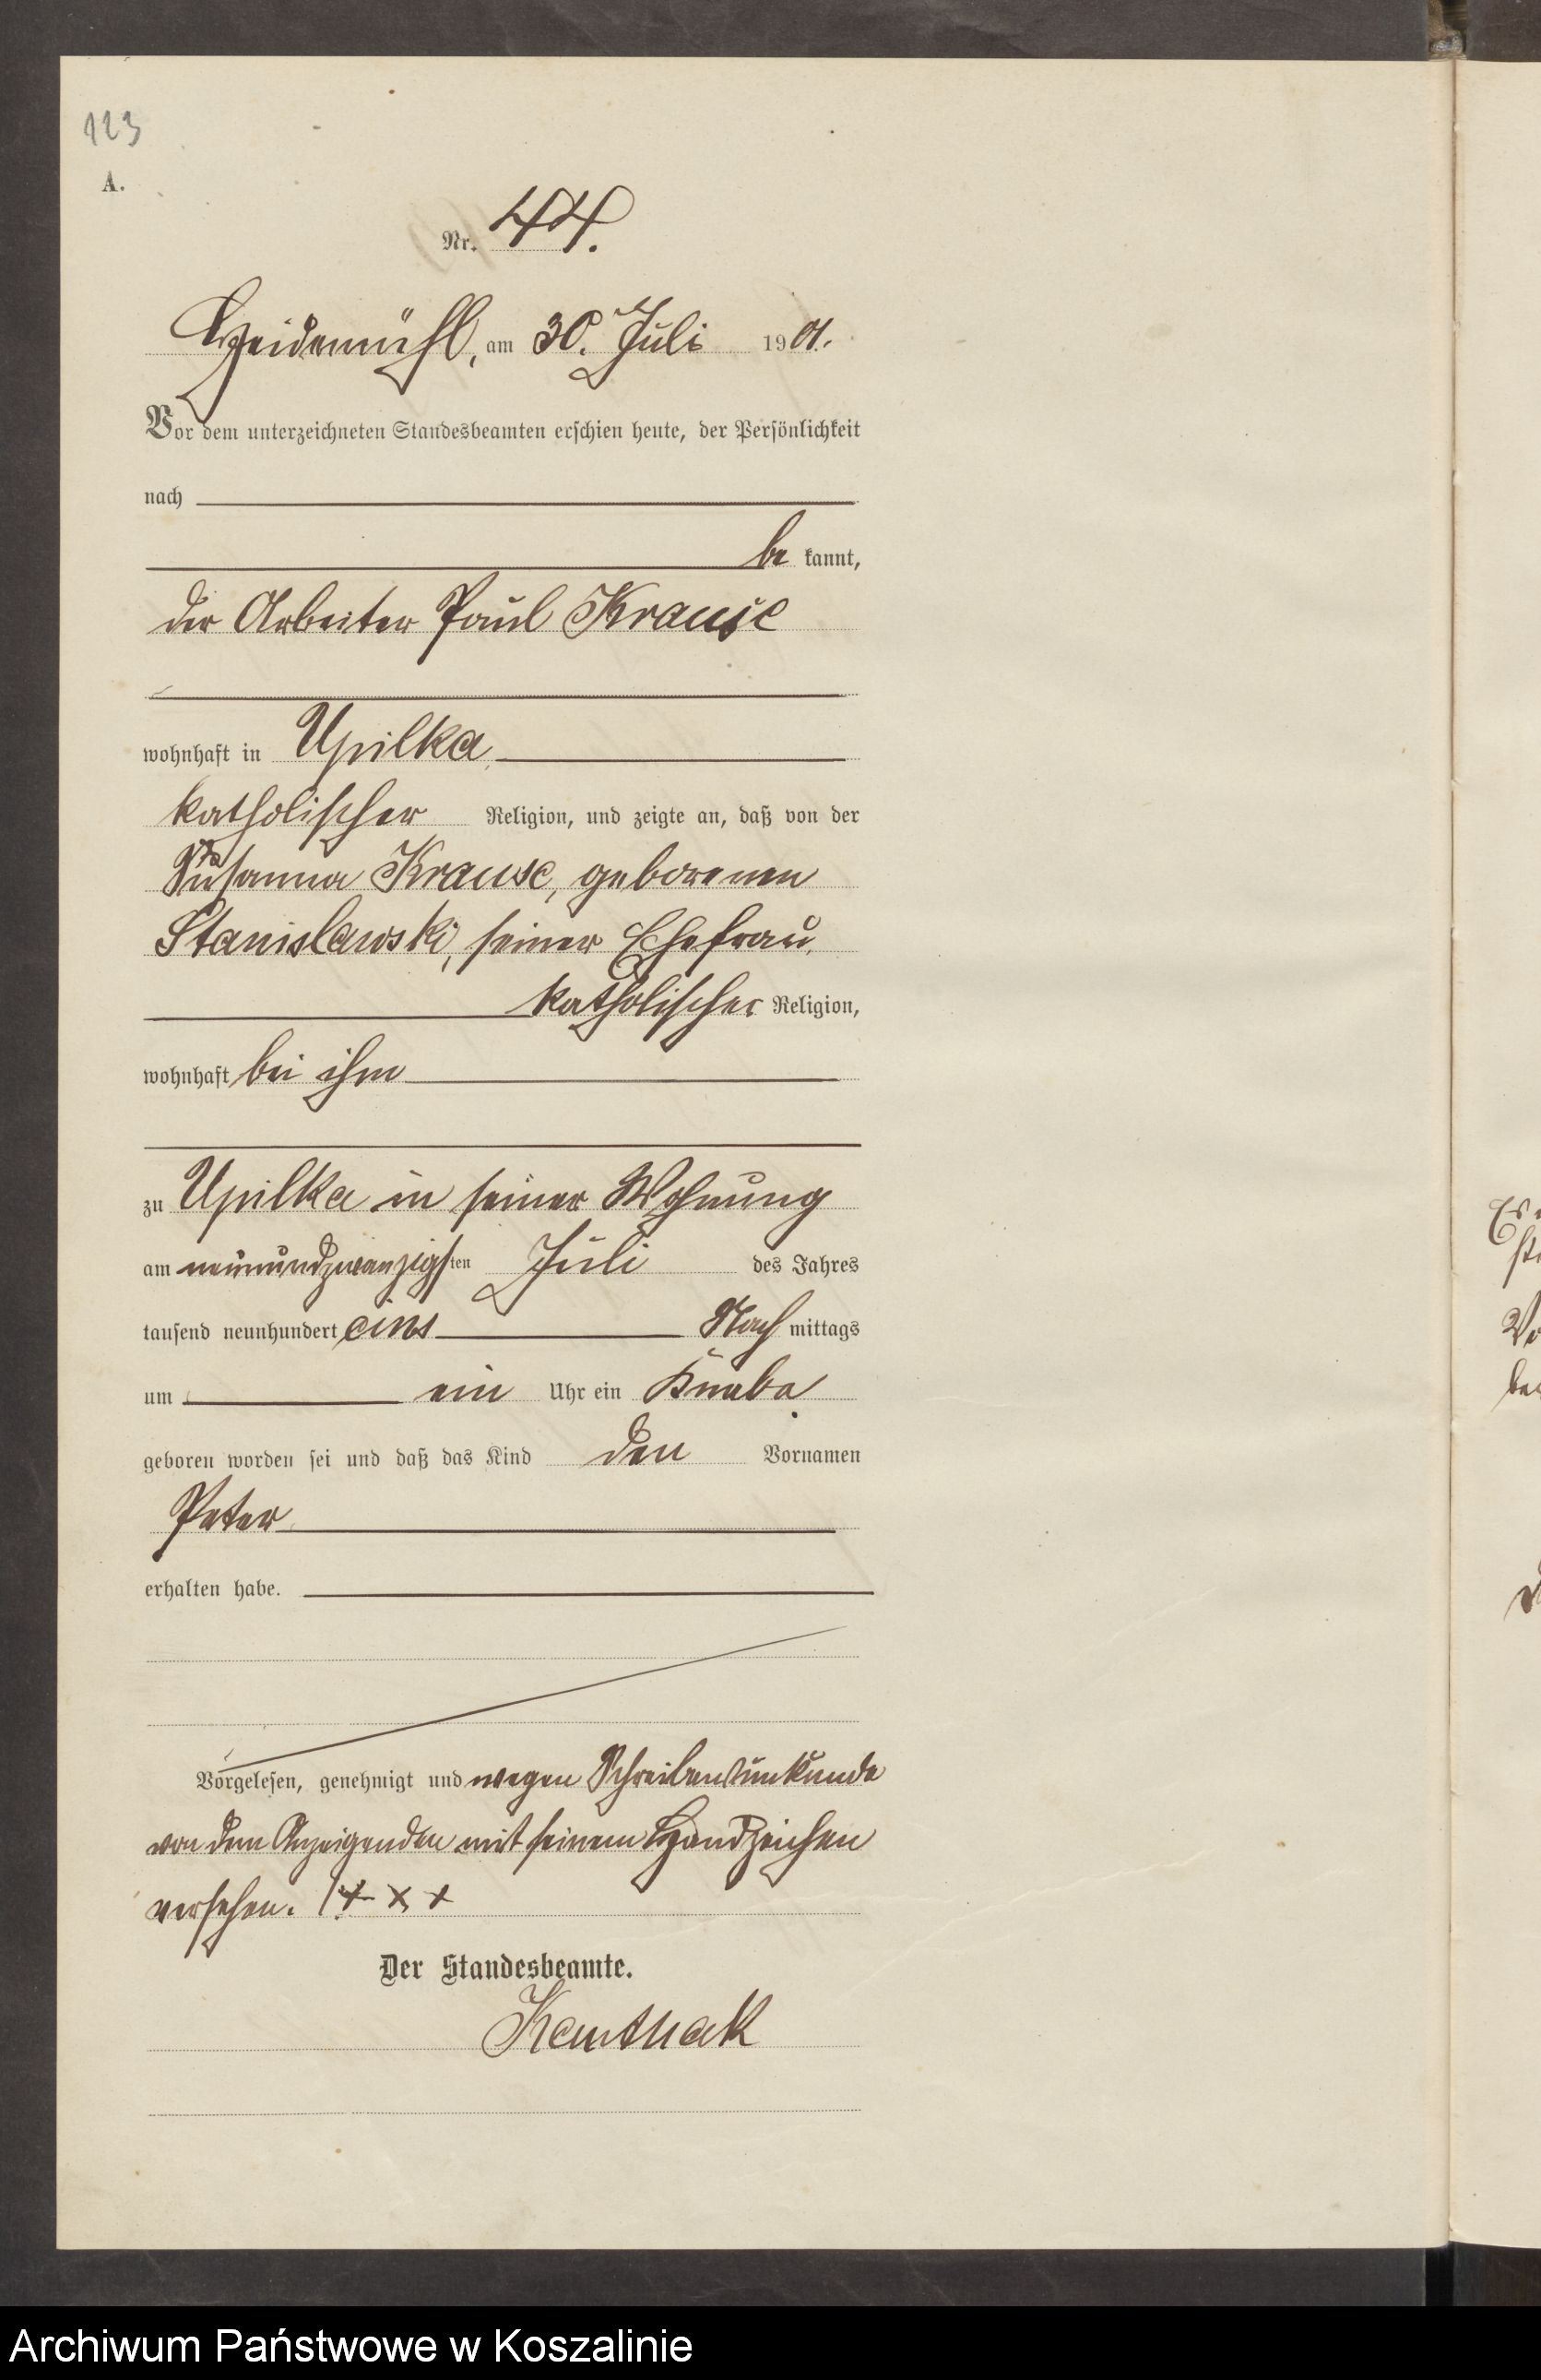 123
A.
Nr. 44.
Heidemühl, am 30. Juli 1901.
Vor dem unterzeichneten Standesbeamten erschien heute, der Persönlichkeit
nach
be kannt,
der Arbeiter Paul Krause
wohnhaft in Upilka
katholischer Religion, und zeigte an, daß von der
Susanna Krause, geborenen
Stanislawski, seiner Ehefrau,
katholischer Religion,
wohnhaft bei ihm
zu Upilka in seiner Wohnung
am neunundzwanzigsten Juli des Jahres
tausend neunhundert eins Nach mittags
um ein Uhr ein Knabe
geboren worden sei und daß das Kind den Vornamen
Peter
erhalten habe.
Vorgelesen, genehmigt und wegen Schreibensunkunde
von dem Anzeigenden mit seinem Handzeichen
versehen. +++
Der Standesbeamte.
Archiwum Państwowe w Koszalinie